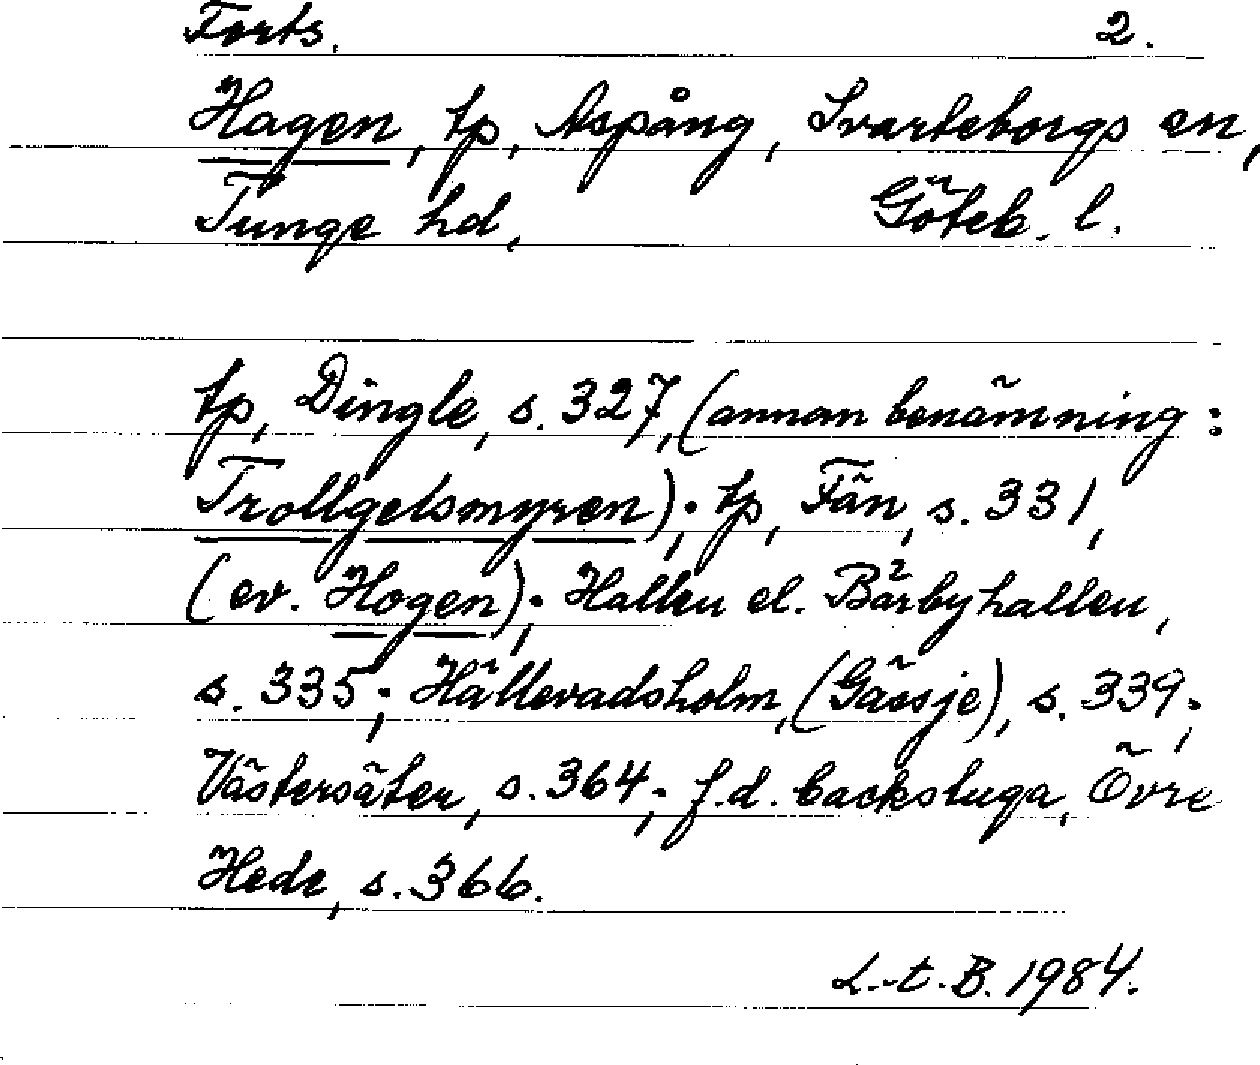 Forts. 2.
Hagen, tp, Aspång, Svarteborgs sn,
Tunge hd, Göteb. l.
tp, Dingle, s. 327, (annan benämning:
Trollgelsmyren); tp, Fån, s. 331,
(ev. Hogen); Hallen el. Bärbyhallen,
s. 335; Hällevadsholm, (Gässje), s. 339;
Västersäter, s. 364; f.d. backstuga, Övre
Hede, s. 366.
L.-t. B. 1984.